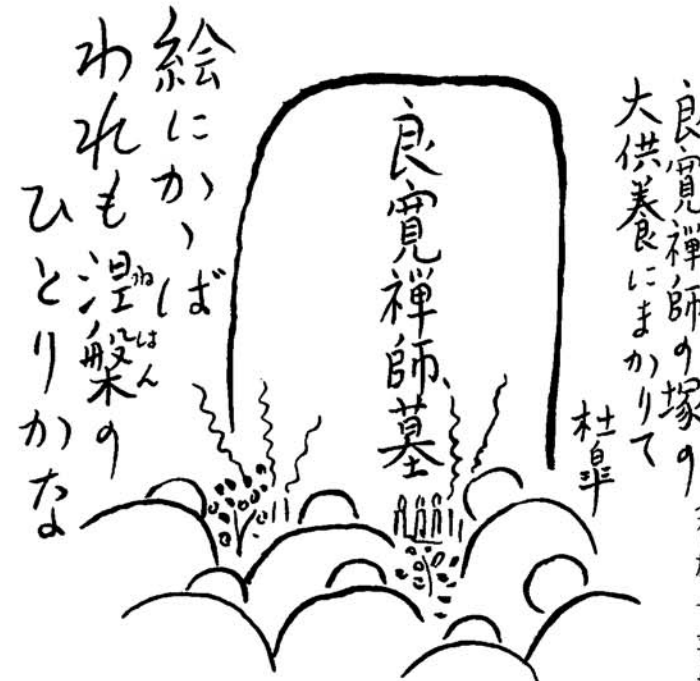 良寛禅師の塚の
大供養にまかりて
杜皐
良寛禅師墓
絵にかゝば
われも涅槃の
ねはん
ひとりかな